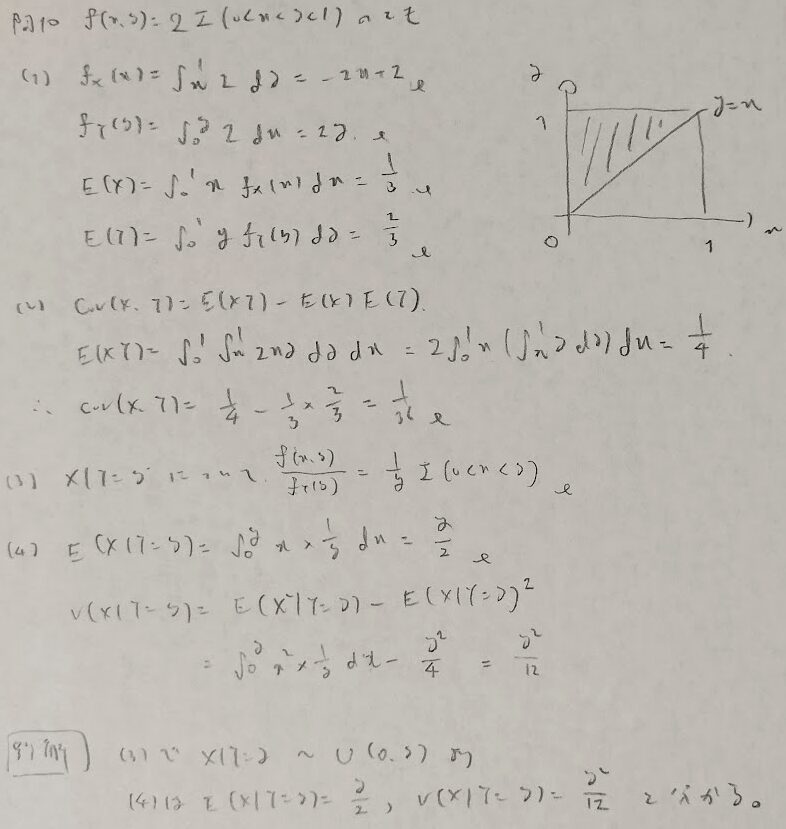 例10 f(x,y)=2 I(0<x<y<1) のとき
(1) f_X(x)=∫_x^1 2 dy = -2x+2
f_Y(y)=∫_0^y 2 dx = 2y.
E(X)=∫_0^1 x f_X(x) dx = 1/3
E(Y)=∫_0^1 y f_Y(y) dy = 2/3
y
1
y=x
0
1
x
(2) Cov(X, Y)=E(XY)-E(X)E(Y).
E(XY)=∫_0^1 ∫_x^1 2xy dy dx = 2∫_0^1 x(∫_x^1 y dy) dx = 1/4.
∴ Cov(X, Y)= 1/4 - 1/3 × 2/3 = 1/36
(3) X|Y=y について. f(x,y)/f_Y(y) = 1/y I(0<x<y)
(4) E(X|Y=y)=∫_0^y x × 1/y dx = y/2
V(X|Y=y)= E(X²|Y=y) - E(X|Y=y)²
= ∫_0^y x² × 1/y dx - y²/4 = y²/12
別解) (3)で X|Y=y ~ U(0,y) より
(4)は E(X|Y=y)= y/2, V(X|Y=y)= y²/12 と分かる。